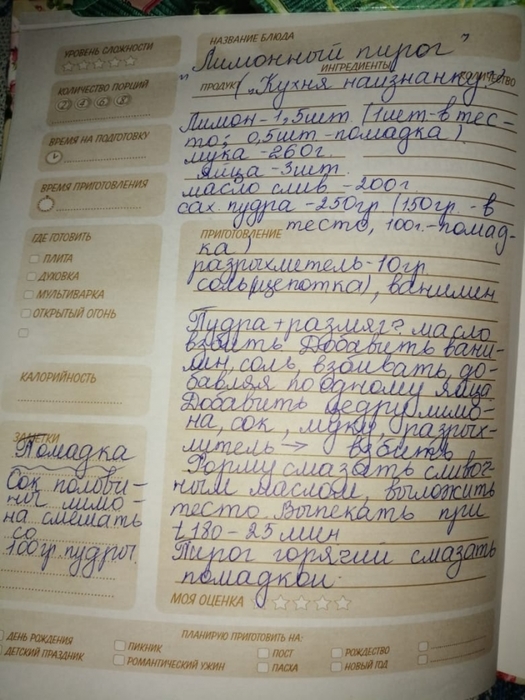 УРОВЕНЬ СЛОЖНОСТИ
НАЗВАНИЕ БЛЮДА
"Лимонный пирог"
КОЛИЧЕСТВО ПОРЦИЙ
2 4 6 8
ИНГРЕДИЕНТЫ
ПРОДУКТ
КОЛИЧЕСТВО
("Кухня наизнанку")
Лимон - 1,5шт. (1шт-в тес-
то; 0,5шт-помадка)
ВРЕМЯ НА ПОДГОТОВКУ
мука - 260г.
Яйца - 3шт.
ВРЕМЯ ПРИГОТОВЛЕНИЯ
масло слив - 200г
сах. пудра - 250гр. (150гр. - в
тесто, 100г.-помад-
ГДЕ ГОТОВИТЬ
ПРИГОТОВЛЕНИЕ
ка)
ПЛИТА
разрыхлитель - 10гр
ДУХОВКА
соль(щепотка), ванилин
МУЛЬТИВАРКА
ОТКРЫТЫЙ ОГОНЬ
Пудра + размягч. масло
взбить. Добавить вани-
лин, соль, взбивать, до-
КАЛОРИЙНОСТЬ
бавляя по одному яйца
Добавить цедру лимо-
на, сок, муку, разрых-
литель → взбить
Форму смазать сливоч-
ным маслом, выложить
тесто. Выпекать при
t 180 - 25 мин
Пирог горячий смазать
помадкой.
ЗАМЕТКИ
Помадка
Сок полови-
ны лимо-
на смешать
со
100гр. пудры.
МОЯ ОЦЕНКА
ПЛАНИРУЮ ПРИГОТОВИТЬ НА:
ДЕНЬ РОЖДЕНИЯ
ПИКНИК
ПОСТ
РОЖДЕСТВО
ДЕТСКИЙ ПРАЗДНИК
РОМАНТИЧЕСКИЙ УЖИН
ПАСХА
НОВЫЙ ГОД